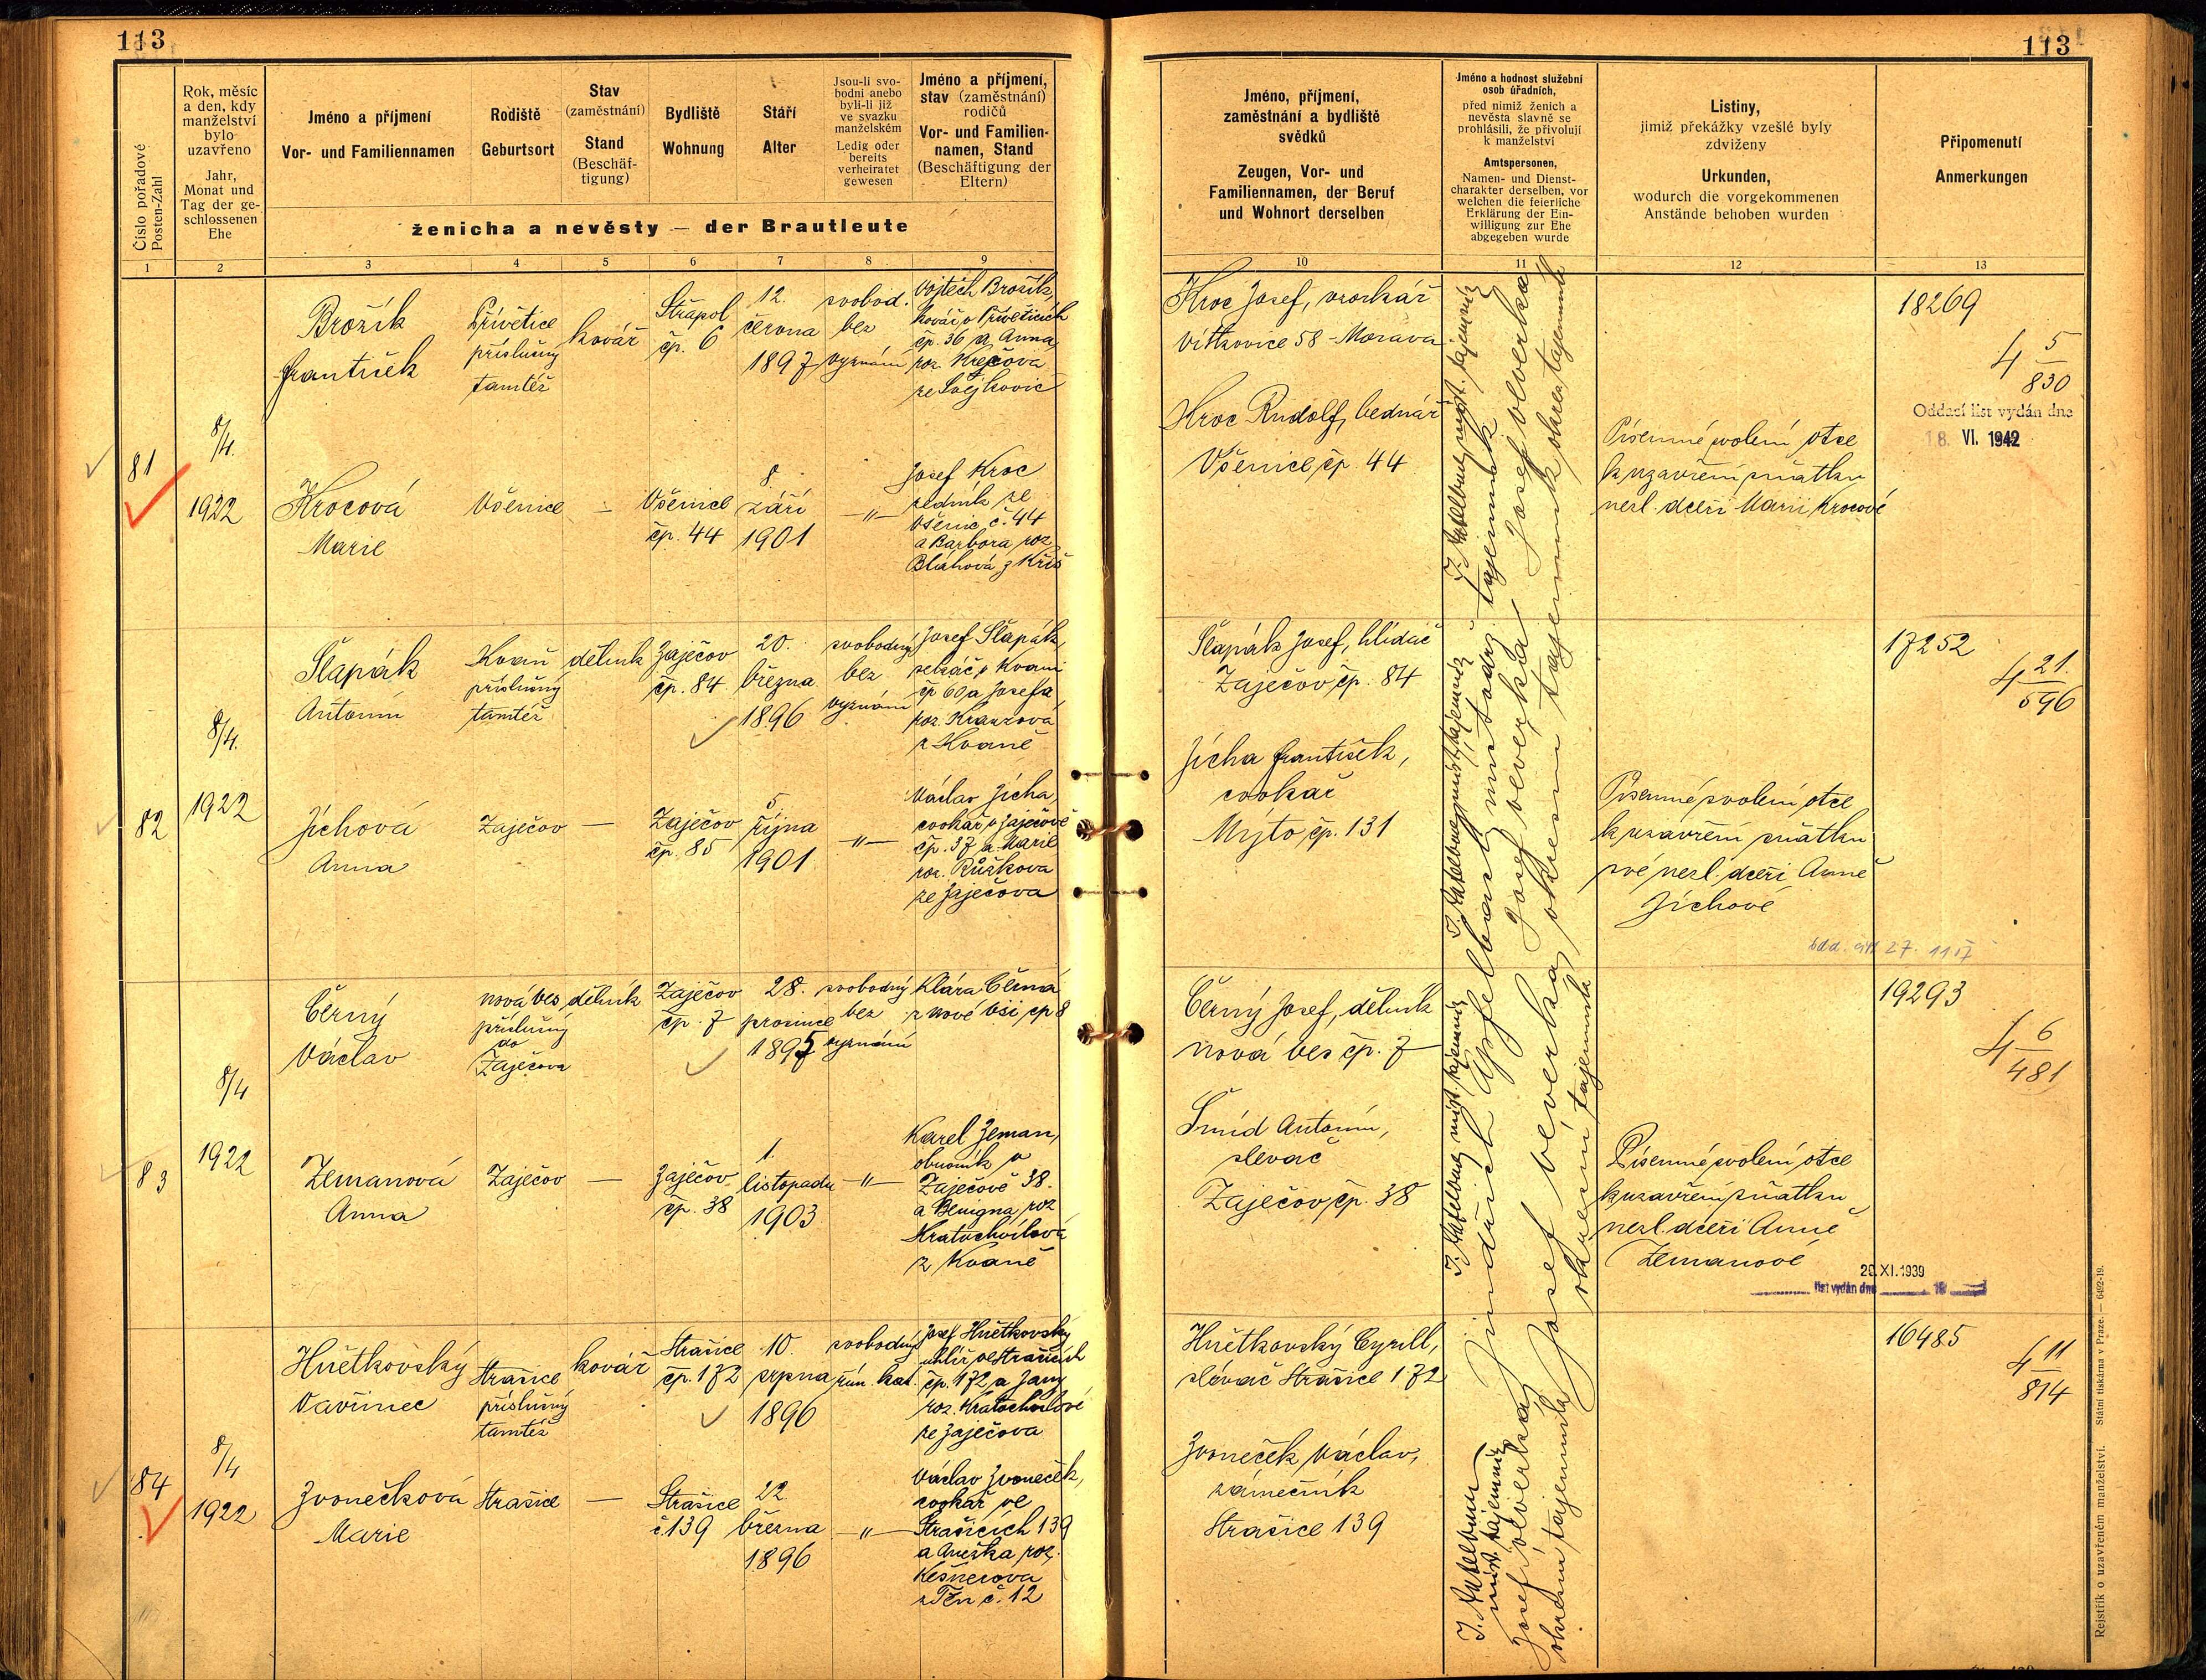 113
113
Číslo pořadové
Posten-Zahl
Rok, měsíc
a den, kdy
manželství
bylo
uzavřeno
Jahr,
Monat und
Tag der ge-
schlossenen
Ehe
Jméno a příjmení
Vor- und Familiennamen
Rodiště
Geburtsort
Stav
(zaměstnání)
Stand
(Beschäf-
tigung)
Bydliště
Wohnung
Stáří
Alter
Jsou-li svo-
bodni anebo
byli-li již
ve svazku
manželském
Ledig oder
bereits
verheiratet
gewesen
Jméno a příjmení,
stav (zaměstnání)
rodičů
Vor- und Familien-
namen, Stand
(Beschäftigung der
Eltern)
ženicha a nevěsty — der Brautleute
Jméno, příjmení,
zaměstnání a bydliště
svědků
Zeugen, Vor- und
Familiennamen, der Beruf
und Wohnort derselben
Jméno a hodnost služební
osob úřadních,
před nimiž ženich a
nevěsta slavně se
prohlásili, že přivolují
k manželství
Amtspersonen,
Namen- und Dienst-
charakter derselben, vor
welchen die feierliche
Erklärung der Ein-
willigung zur Ehe
abgegeben wurde
Listiny,
jimiž překážky vzešlé byly
zdviženy
Urkunden,
wodurch die vorgekommenen
Anstände behoben wurden
Připomenutí
Anmerkungen
1 2 3 4 5 6 7 8 9 10 11 12 13
81
8/4.
1922
Brožík
František
Přívětice
příslušný
tamtéž
kovář
Strapol
čp. 6
12.
června
1897
svobod.
bez
vyznání
Vojtěch Brožík,
kovář v Přívěticích
čp. 36 a Anna
roz. Krejčova
ze Svejkovic
Krocová
Marie
Všenice
—
Všenice
čp. 44
8
září
1901
—"—
Josef Kroc
zedník ze
Všenic č. 44
a Barbora roz
Bláhová z Kříš
Kroc Josef, vzorkář
Vítkovice 58 - Morava
Kroc Rudolf, bednář
Všenice čp. 44
Písemné svolení otce
k uzavření sňatku
nezl. dceři Marii Krocové
18269
4 5
830
Oddací list vydán dne
18. VI. 1942
82
8/4.
1922
Šlapák
Antonín
Kvaň
příslušný
tamtéž
dělník
Zaječov
čp. 84
20.
března
1896
svobodný
bez
vyznání
Josef Šlapák,
sekáč v Kvani
čp 60 a Josefa
roz. Krauzová
z Kvaně
Jíchová
Anna
Zaječov
—
Zaječov
čp. 85
5
října
1901
—"—
Václav Jícha,
cvokař v Zaječově
čp. 37 a Marie
roz. Růžkova
ze Zaječova
Šlapák Josef, hlídač
Zaječov čp. 84
Jícha František,
cvokař
Mýto čp. 131
Písemné svolení otce
k uzavření sňatku
své nezl. dceři Anně
Jíchové
17252
4 21.
596
83
8/4
1922
Černý
Václav
nová ves
příslušný
do
Zaječova
dělník
Zaječov
čp. 7
28.
prosince
1895
svobodný
bez
vyznání
Klára Černá
z nové vsi čp 8
Zemanová
Anna
Zaječov
—
Zaječov
čp. 38
1.
listopadu
1903
—"—
Karel Zeman,
obuvník v
Zaječově 38.
a Benigna roz
Kratochvílová
z Kvaně
Černý Josef, dělník
nová ves čp. 7
Šmíd Antonín,
slevač
Zaječov čp. 38
Písemné svolení otce
k uzavření sňatku
nezl. dceři Anně
Zemanové
19293
4 6
481
29. XI. 1939
list vydán dne 19
84
8/4
1922
Hnětkovský
Vavřinec
Strašice
příslušný
tamtéž
kovář
Strašice
čp. 172
10.
srpna
1896
svobodný
řím. kat.
Josef Hnětkovský
uhlíř ve Strašicích
čp. 172 a Jany
roz. Kratochvílové
ze Zaječova
Zvonečková
Marie
Strašice
—
Strašice
č 139
22
března
1896
—"—
Václav Zvoneček,
cvokař ve
Strašicích 139
a Anežka roz.
Kešnerova
z Těn č. 12
Hnětkovský Cyrill,
slévač Strašice 172
Zvoneček Václav,
zámečník
Strašice 139
16485
4 11
814
Josef Veverka
okresní tajemník
Rejstřík o uzavřeném manželství. Státní tiskárna v Praze. — 6492-19.